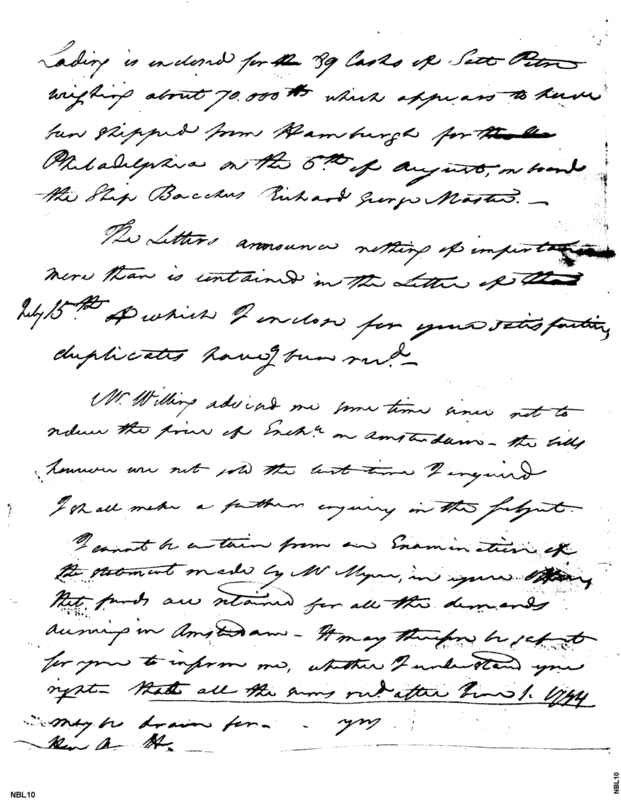 Lading is inclosed for 39 Casks of Salt Petre
weighing about 70.000 lbs which appears to have
been shipped from Hamburgh for
Philadelphia on the 6th of August, on board
the Ship Bacchus Richard George Master. —
The Letters announce nothing of importance
more than is contained in the Letter of
July 15th of which I inclose for your satisfaction,
duplicates having been recd. —
Mr. Willing advised me some time since not to
reduce the price of Exche. on Amsterdam — the bills
however were not sold the last time I enquired
I shall make a further enquiry in the subject.
I cannot be certain from an Examination of
the statement made by Mr Meyer, in your
that funds are retained for all the demands
accruing in Amsterdam — It may therefore be
for you to inform me, whether I understand you
right — that all the sums recd after June 1. 1794
may be drawn for —
Hon A H.
NBL10
NBL10